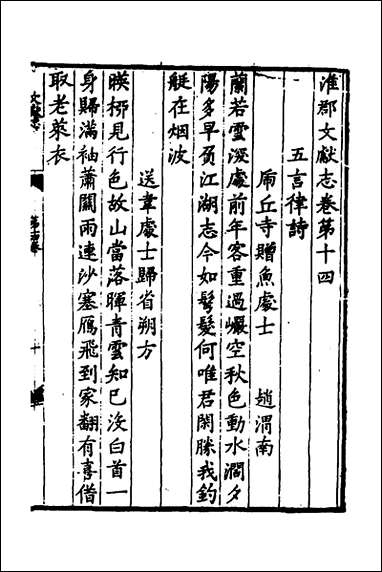 淮郡文獻志卷第十四
五言律詩
虎丘寺贈魚處士 趙渭南
蘭若雲深處前年客重過巖空秋色動水濶夕
陽多早負江湖志今如鬂髮何唯君閑勝我釣
艇在烟波
送韋處士歸省朔方
暎栁見行色故山當落暉青雲知已没白首一
身歸滿袖蕭關雨連沙塞鴈飛到家翻有喜借
取老萊衣